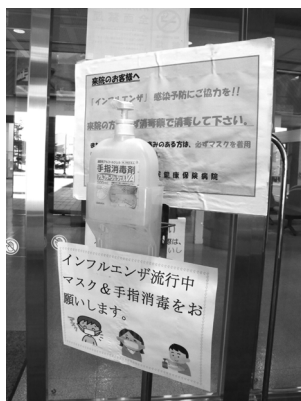 来院のお客様へ
『インフルエンザ』感染予防にご協力を!!
来院の方
ず消毒薬で消毒して下さい。
のある方は、必ずマスクを着用
健康保険病院
手指消毒剤
インフルエンザ流行中
マスク&手指消毒をお
願いします。